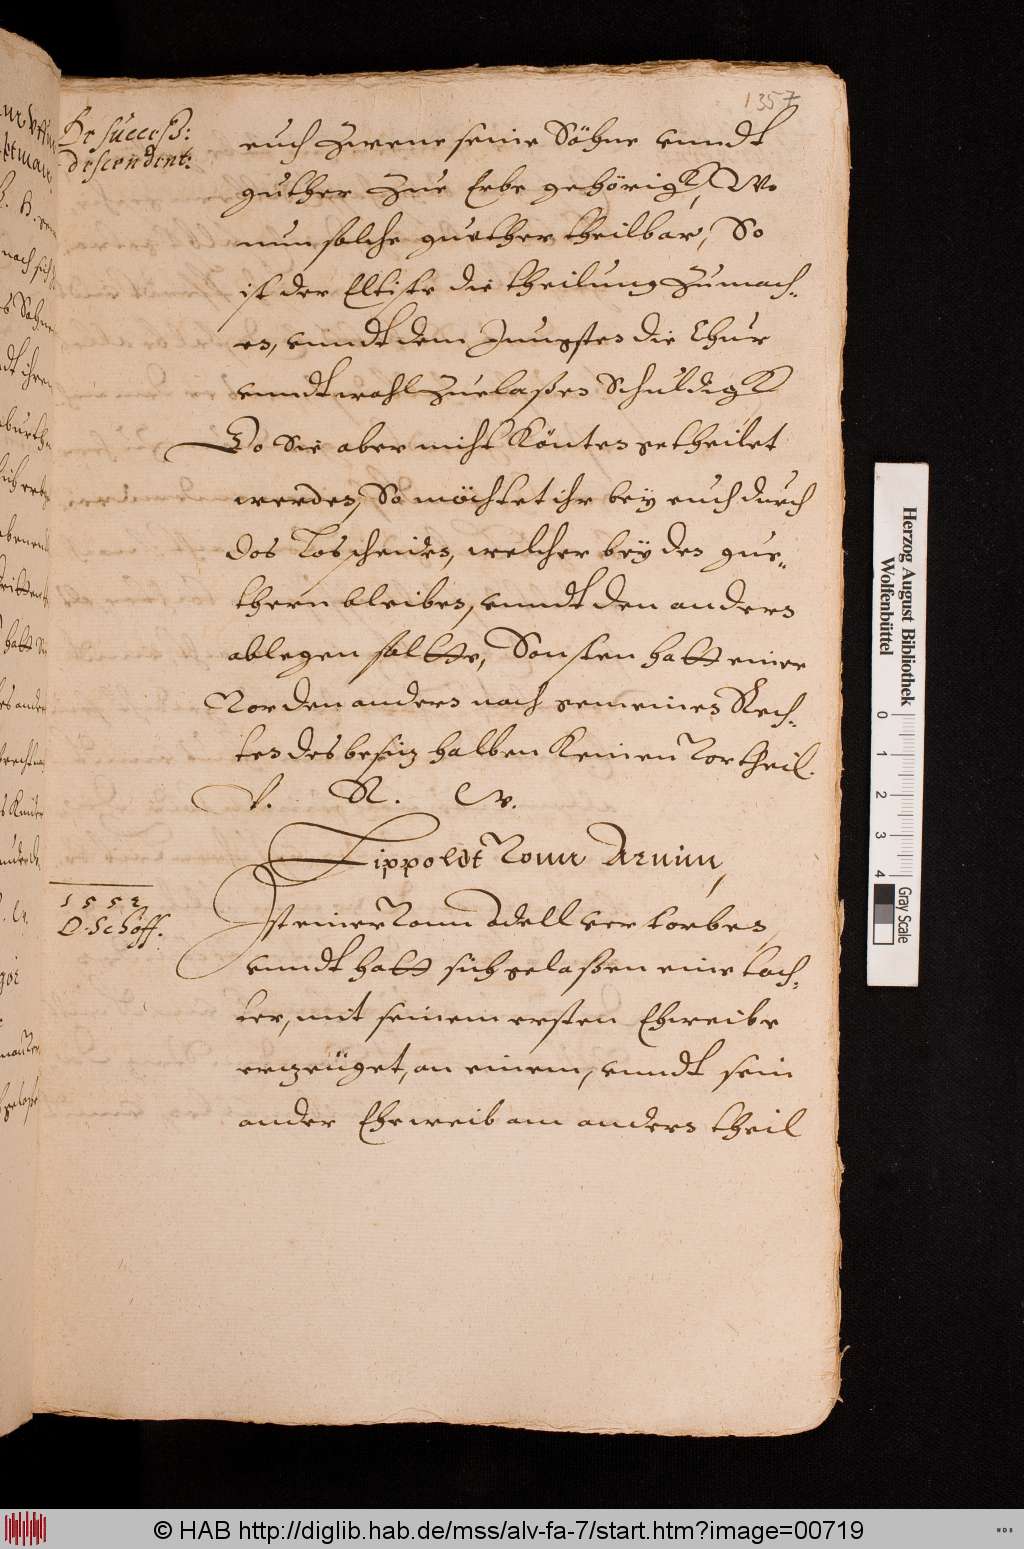 1357
De success:
descendent:
euch zwene seine Söhne vnndt
guther zue Erbe gehörigk, Wo
nun solche guether theilbar, So
ist der Eltiste die theilung zumach-
en, vnndt dem Jungsten die Chur
vnndt wahl zuelaßen schuldigk
Do Sie aber nicht Könten getheilet
werden, So möchtet ihr bey euch durch
das Los scheiden, welcher bey den gue-
thern bleiben, vnndt den andern
ablegen soltte, Sonsten hatt einer
Vor den andern nach gemeinen Rech-
ten des besitz halben Keinen Vortheil.
V. R. W.
Lippoldt Vonn Arnim,
1552
D. Schöff.
Ist einer Vonn Adell verstorben,
vnndt hatt sich gelaßen eine toch-
ter, mit seinem ersten Eheweibe
erzeüget, an einem, vnndt sein
ander Eheweib am andern theil
Herzog August Bibliothek
Wolfenbüttel
0 1 2 3 4
Gray Scale
© HAB http://diglib.hab.de/mss/alv-fa-7/start.htm?image=00719